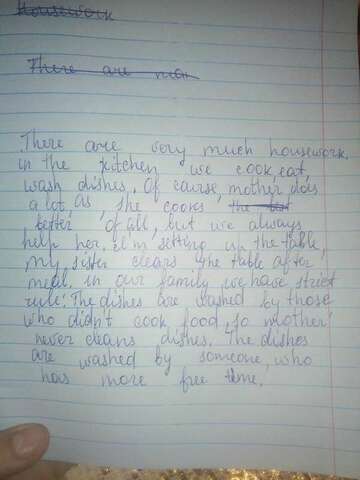 Housework
There are
There are very much housework.
in the kitchen we cook, eat,
wash dishes. Of course, mother does
a lot, as she cooks, the
better of all, but we always
help her. I'm setting up the table,
my sister clears the table after
meal. in our family we have street
rule: The dishes are washed by those
who didn't cook food, so mother
never cleans dishes. The dishes
are washed by someone, who
has more free time.